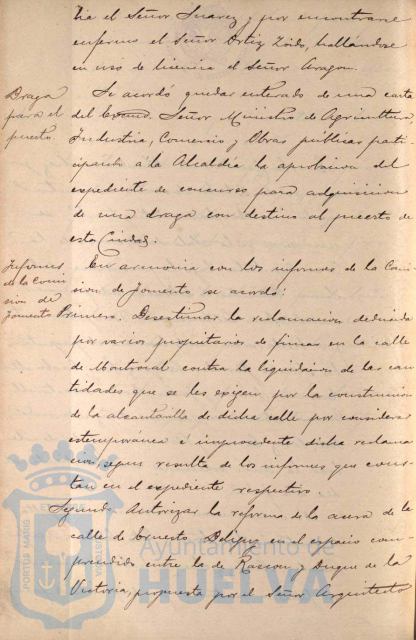 lia el Señor Suarez y por encontrarse
enfermo el Señor Ortiz Zoido, hallándose
en uso de licencia el Señor Aragon.
Draga
para el
puerto.
Se acordó quedar enterado de una carta
del Excmo. Señor Ministro de Agricultura,
Industria, Comercio y Obras públicas parti-
cipando á la Alcaldía la aprobacion del
expediente de concurso para adquisicion
de una draga con destino al puerto de
esta Ciudad.
Informes
de la Comi
sion de
Fomento
En armonia con los informes de la Comi
sion de Fomento se acordó:
Primero. Desestimar la reclamacion deducida
por varios propietarios de fincas en la calle
de Montrocal contra la liquidacion de las can
tidades que se les exigen por la construccion
de la alcantarilla de dicha calle por considerar
estemporanea é improcedente dicha reclama
cion, segun resulta de los informes que cons-
tan en el expediente respectivo.
Segundo. Autorizar la reforma de la acera de la
calle de Ernesto Deligny en el espacio com-
prendido entre la de Rascon y Duque de la
Victoria, propuesta por el Señor Arquitecto
PORTUS MARIS
Ayuntamiento de
HUELVA